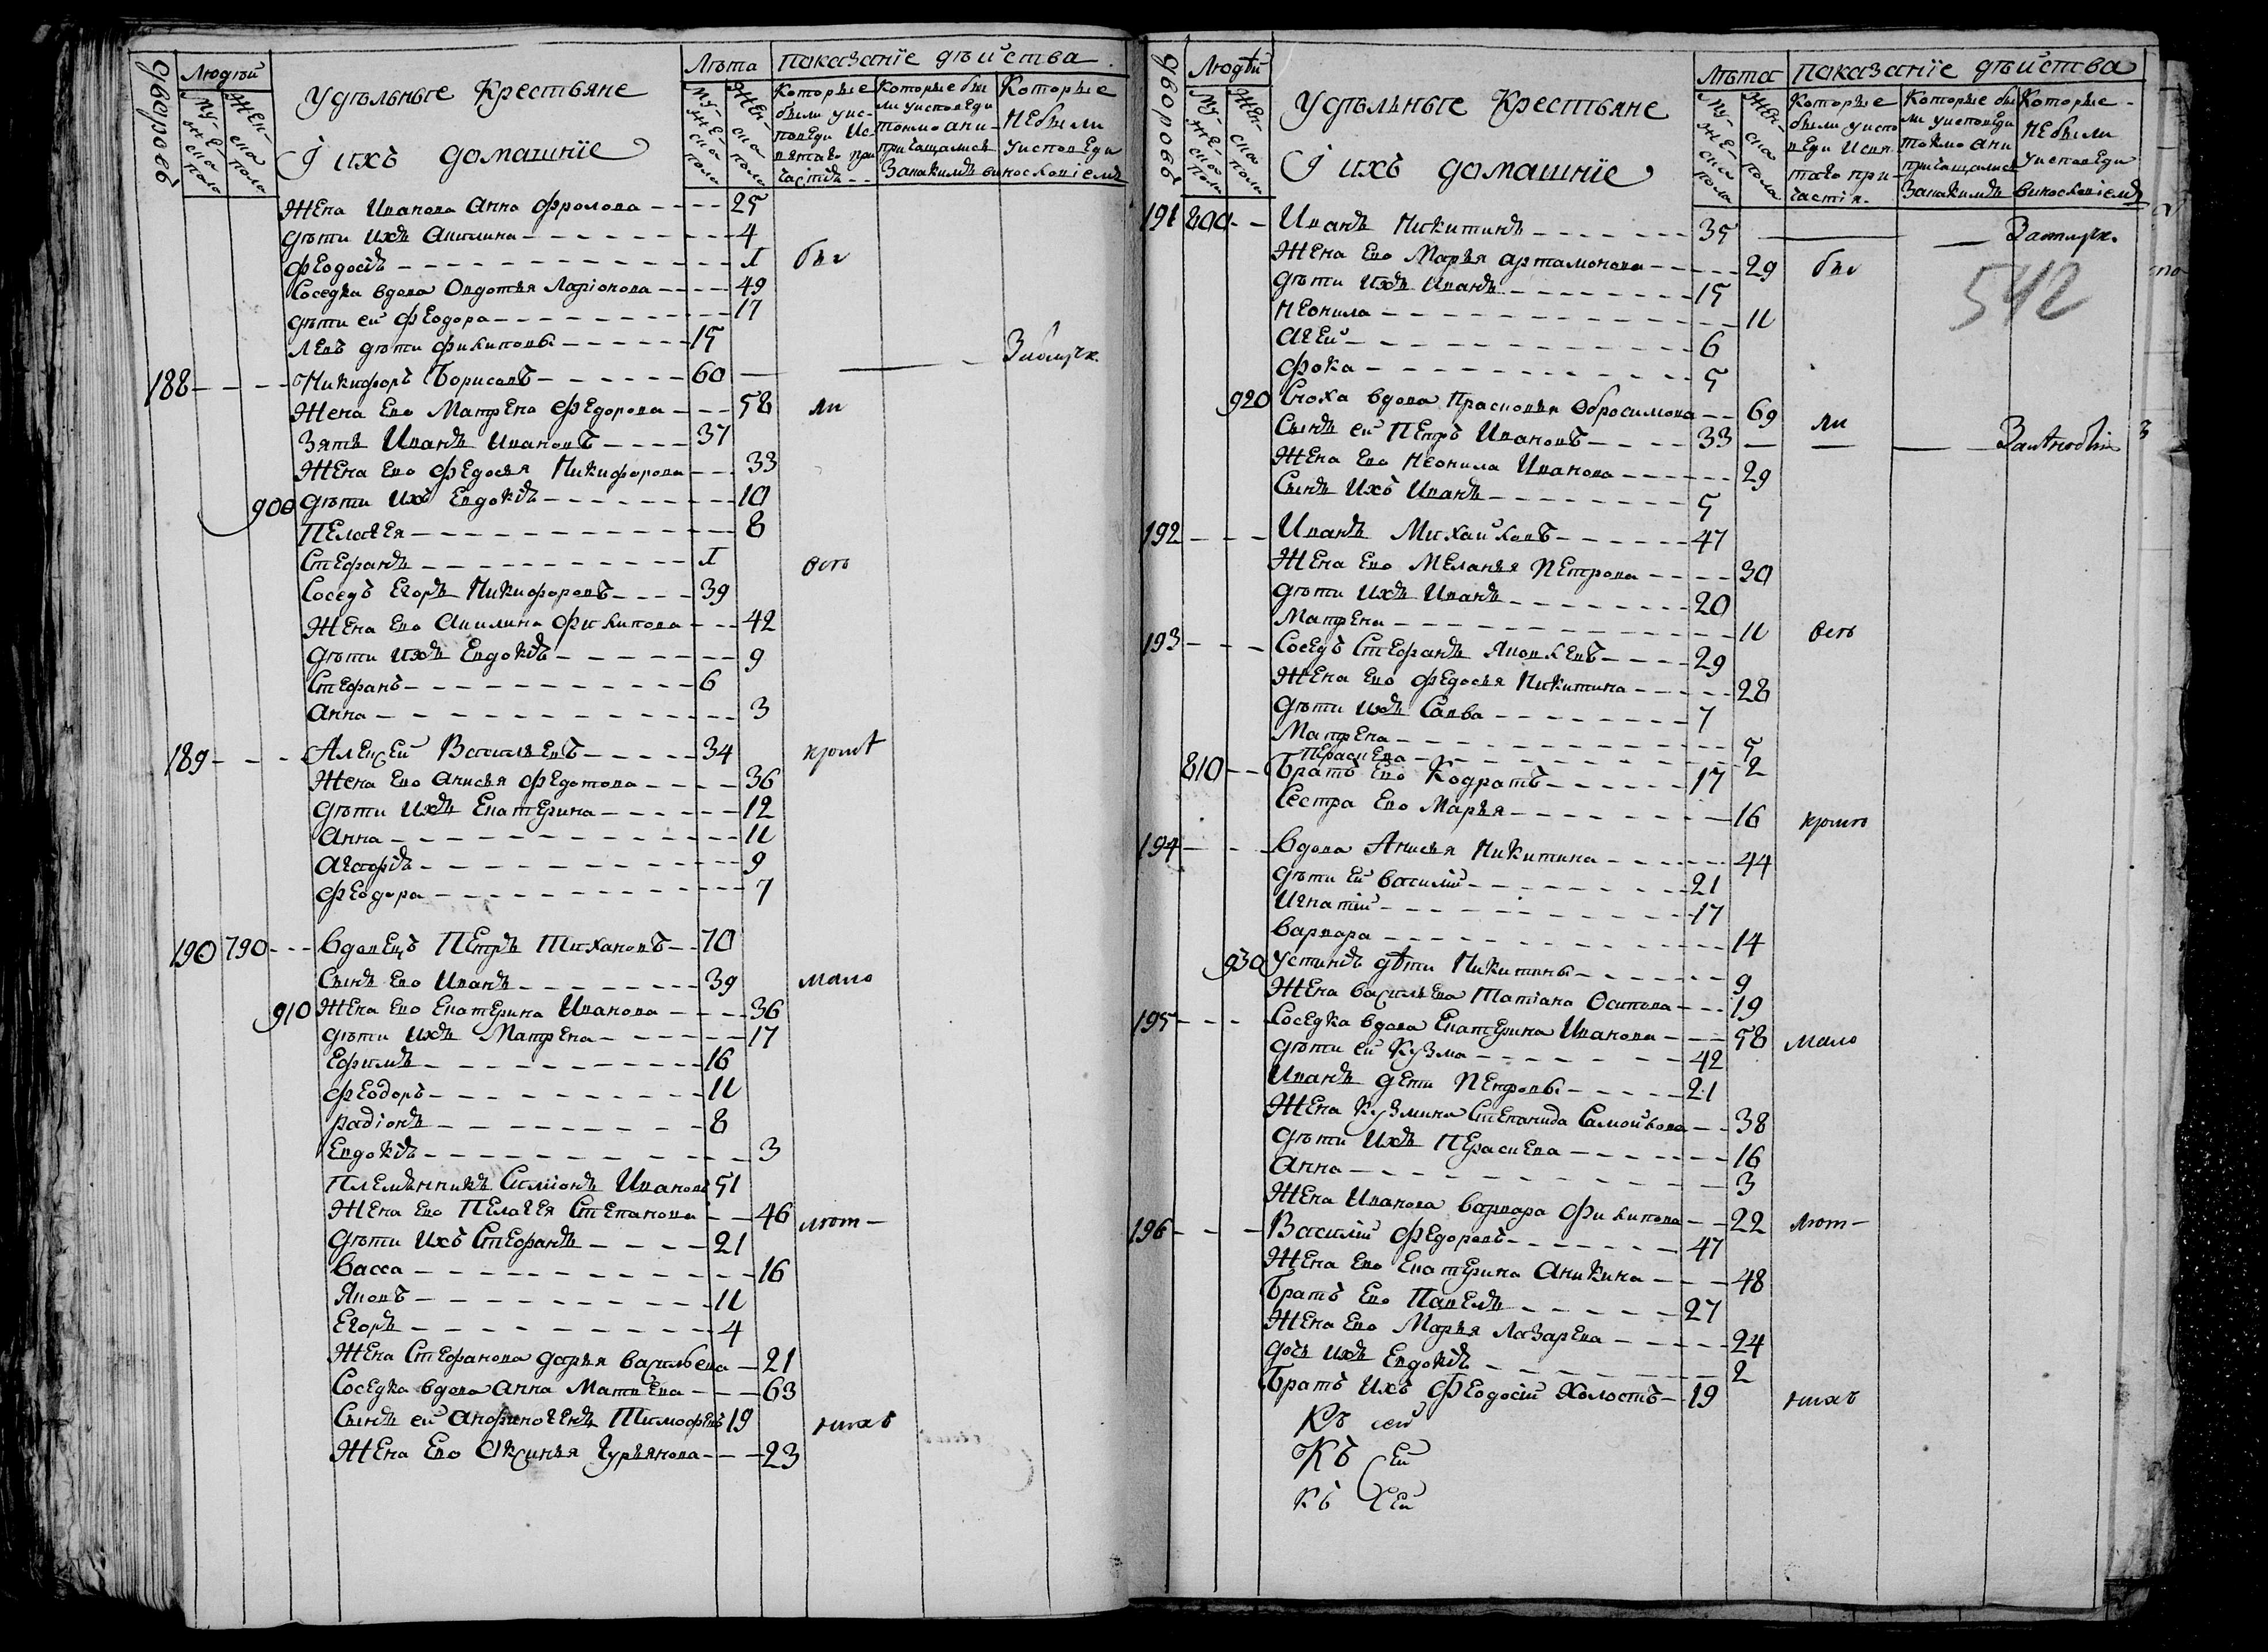 дворовъ
Людѣй
Му-
же-
ска
полу
Жен-
ска
полу
Удѣльные Крестьяне
I ихъ домашнïе
Лѣта
Му-
же-
ска
пола
Жен-
ска
пола
показанïе дѣйства
Которые
были уис-
поведи и с-
вятаго при
частiя --
Которые бы
ли уисповеди
токмо они-
причащались
Закакимъ ви
Которые
небыли
уисповеди
нословiемъ
Жена Иванова Анна Фролова - - - - 25
дѣти ихъ Акилина - - - 4
Феодосiя - - - I бы
Соседка вдова Овдотья Ларiонова - - - 49
дѣти ей Феодора - - - 17
Левъ дѣти Филиповы - - - 15
188 - - - Никифоръ Борисовъ - - - 60 —
Жена ево Матрена Федорова - - - 58 ли
Зять Иванъ Ивановъ - - - 37
Жена ево Федосья Никифорова - - - 33
900 дѣти ихъ Евдокiя - - - 10
Пелагея - - - 8
Стефанъ - - - I всѣ
Соседъ Егоръ Никифоровъ - - - 39
Жена ево Акилина Филипова - - - 42
дѣти ихъ Евдокiя - - - 9
Стефанъ - - - 6
Анна - - - 3
189 - - - Алексей Васильевъ - - - 34 кромѣ
Жена ево Анисья Федотова - - - 36
дѣти ихъ Екатерина - - - 12
Анна - - - 11
Агафiя - - - 9
Феодора - - - 7
190 790 - - - вдовецъ Петръ Тихановъ - - 70
Сынъ ево Иванъ - - - 39 мало
910 Жена ево Екатерина Иванова - - - 36
дѣти ихъ Матрена - - - 17
Ефимъ - - - 16
Феодоръ - - - 11
Радiонъ - - - 8
Евдокiя - - - 3
Племянникъ Симiонъ Ивановъ 51
Жена ево Пелагея Степанова - - 46 лѣт-
дѣти ихъ Стефанъ - - - 21
Васса - - - 16
Яковъ - - - 11
Егоръ - - - 4
Жена Стефанова Дарья Васильева - 21
Соседка вдова Анна Матвева - - - 63
Сынъ ей Анфиногенъ Тимофеевъ 19 нихъ
Жена ево Оксинья Гурьянова - - - 23
дворовъ
Людѣй
Му-
же-
ско
полу
Жен-
ска
полу
Удѣльные Крестьяне
I ихъ домашнïе
Лѣта
Му-
же-
ска
пола
Жен-
ска
пола
показанïе дѣйства
Которые
были уиспо
веди исвя-
таго при-
частiя.
Которые бы
ли уисповеди
токмо они
причащались
Закакимъ
Которые
небыли
уисповеди
винословiемъ
191 800 - - Иванъ Никитинъ - - - 35 —
542
Жена ево Марья Артамонова - - - 29 бы
дѣти ихъ Иванъ - - - 15
Неонила - - - 11
Агей - - - 6
Фока - - - 5
920 Сноха вдова Прасковья Обросимова - - 69 ли
Сынъ ей Петръ Ивановъ - - - 33 —
Жена ево Неонила Иванова - - - 29
Сынъ ихъ Иванъ - - - 5
192 - - - Иванъ Михайловъ - - - 47
Жена ево Меланья Петрова - - - 30
дѣти ихъ Иванъ - - - 20
Матрена - - - 11 всѣ
193 - - - Соседъ Стефанъ Яковлевъ - - - 29
Жена ево Федосья Никитина - - - 28
дѣти ихъ Савва - - - 7
Матрена - - - 5
Перасцева - - - 2
810 - - Братъ ево Кодратъ - - - 17
Сестра ево Марья - - - 16 кромѣ
194 - - - вдова Анисья Никитина - - - 44
дѣти ей Василiй - - - 21
Игнатiй - - - 17
Варвара - - - 14
930 Устинiя дѣти Никитины - - - 9
Жена Васильева Татiана Осипова - - - 19
195 - - - Соседка вдова Екатерина Иванова - - - 58 мало
дѣти ей Кузма - - - 42
Иванъ дети Петровы - - - 21
Жена Кузмина Степанида Самойлова - - 38
дѣти ихъ Перасцева - - - 16
Анна - - - 3
Жена Иванова Варвара Филипова - - 22 лѣт-
196 - - - Василiй Федоровъ - - - 47
Жена ево Екатерина Аникина - - - 48
Братъ ево Павелъ - - - 27
Жена ево Марья Лазарева - - - 24
дочь ихъ Евдокiя - - - 2
Братъ ихъ Феодосiй холостъ - 19 нихъ
Къ сей
Къ сей
къ сей